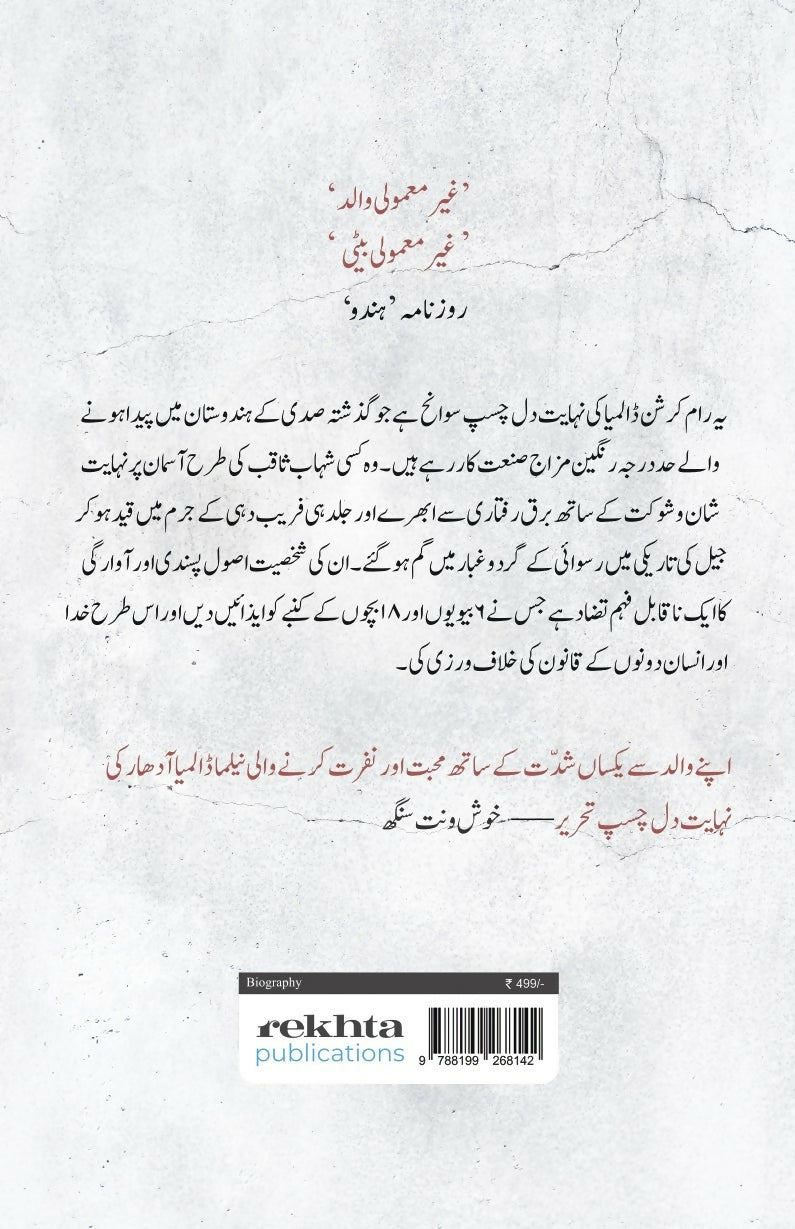 ’غیر معمولی والد‘
’غیر معمولی بیٹی‘
روزنامہ ’ہندو‘
یہ رام کرشن ڈالمیا کی نہایت دل چسپ سوانح ہے جو گذشتہ صدی کے ہندوستان میں پیدا ہونے
والے حد درجہ رنگین مزاج صنعت کار رہے ہیں۔ وہ کسی شہاب ثاقب کی طرح آسمان پر نہایت
شان و شوکت کے ساتھ برق رفتاری سے ابھرے اور جلد ہی فریب دہی کے جرم میں قید ہو کر
جیل کی تاریکی میں رسوائی کے گرد و غبار میں گم ہو گئے۔ ان کی شخصیت اصول پسندی اور آوارگی
کا ایک ناقابل فہم تضاد ہے جس نے ۶ بیویوں اور ۱۸ بچوں کے کنبے کو ایذائیں دیں اور اس طرح خدا
اور انسان دونوں کے قانون کی خلاف ورزی کی۔
اپنے والد سے یکساں شدّت کے ساتھ محبت اور نفرت کرنے والی نیلما ڈالمیا آدھار کی
نہایت دل چسپ تحریر —— خوش ونت سنگھ
Biography ₹ 499/-
rekhta
publications
9 788199 268142